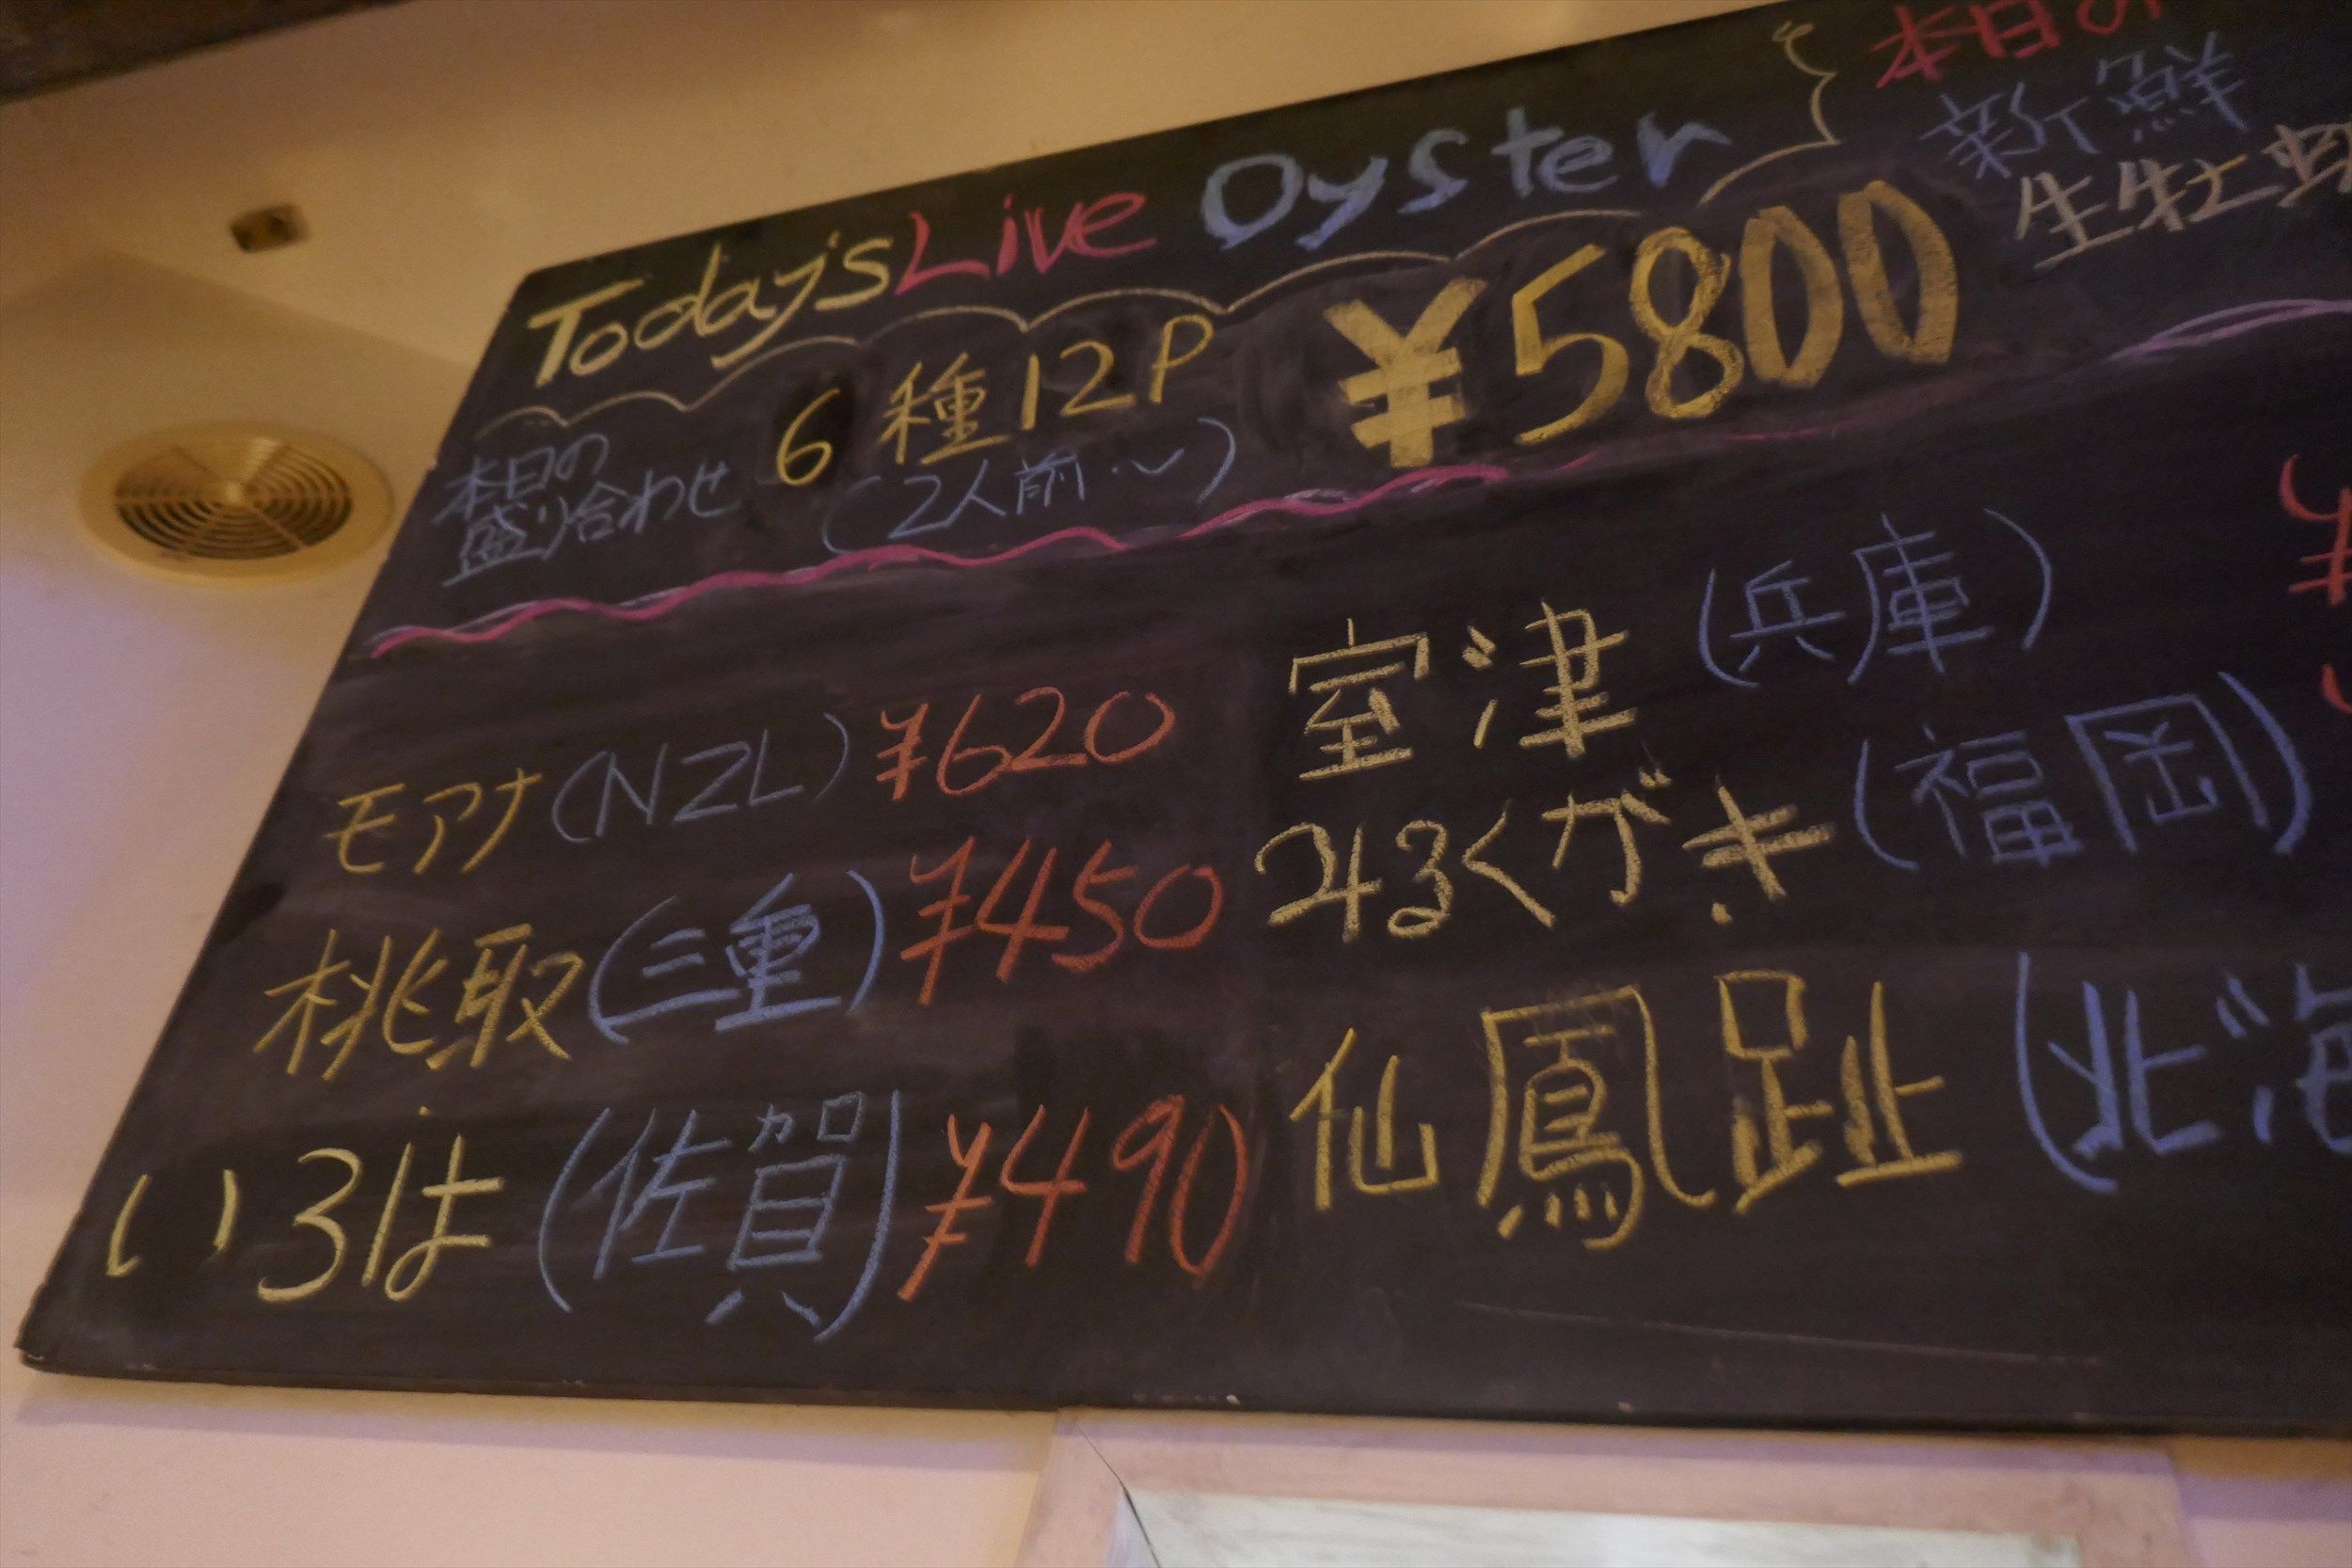 Today's Live Oyster
本日の
盛り合わせ
6種12P
(2人前～)
¥5800
本日の
新鮮
生牡蠣
モアナ(NZL) ¥620
桃取(三重) ¥450
いろは(佐賀) ¥490
室津(兵庫)
みるくがき(福岡)
仙鳳趾(北海